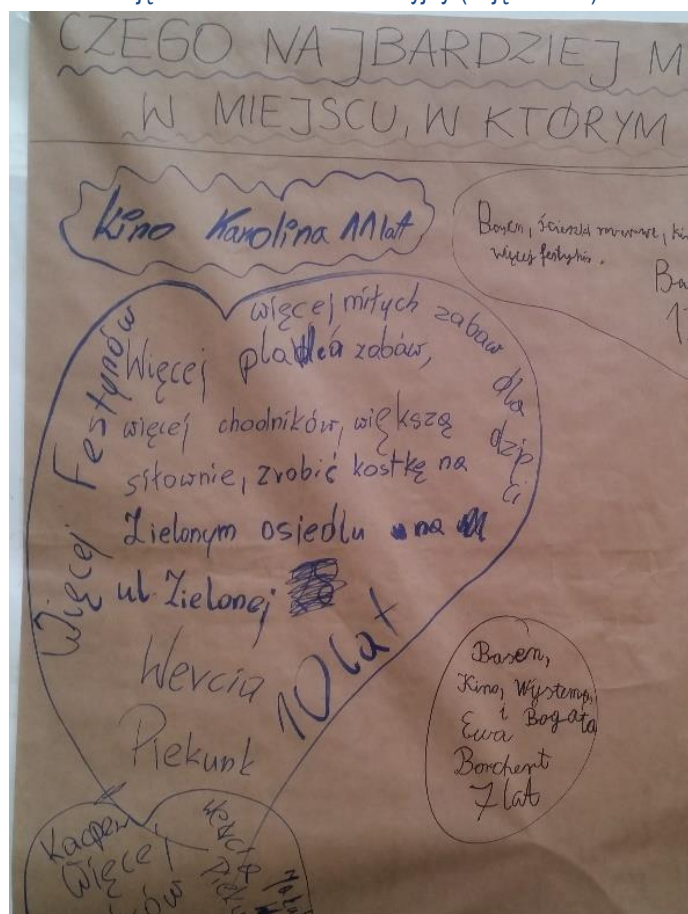 CZEGO NAJBARDZIEJ M
W MIEJSCU, W KTÓRYM
Kino Karolina 11 lat
Basen, ścieżki rowerowe, kin
więcej festynów.
Ba
Więcej Festynów
więcej miłych zabaw dla dzieci
Więcej placów zabaw,
więcej chodników, większą
siłownie, zrobić kostkę na
Zielonym osiedlu na
ul. Zielonej
Wercia
Piekunt
10 lat
Basen,
Kino, Występy,
i
Ewa Bogata
Borchert
7 lat
Kacper
Więcej